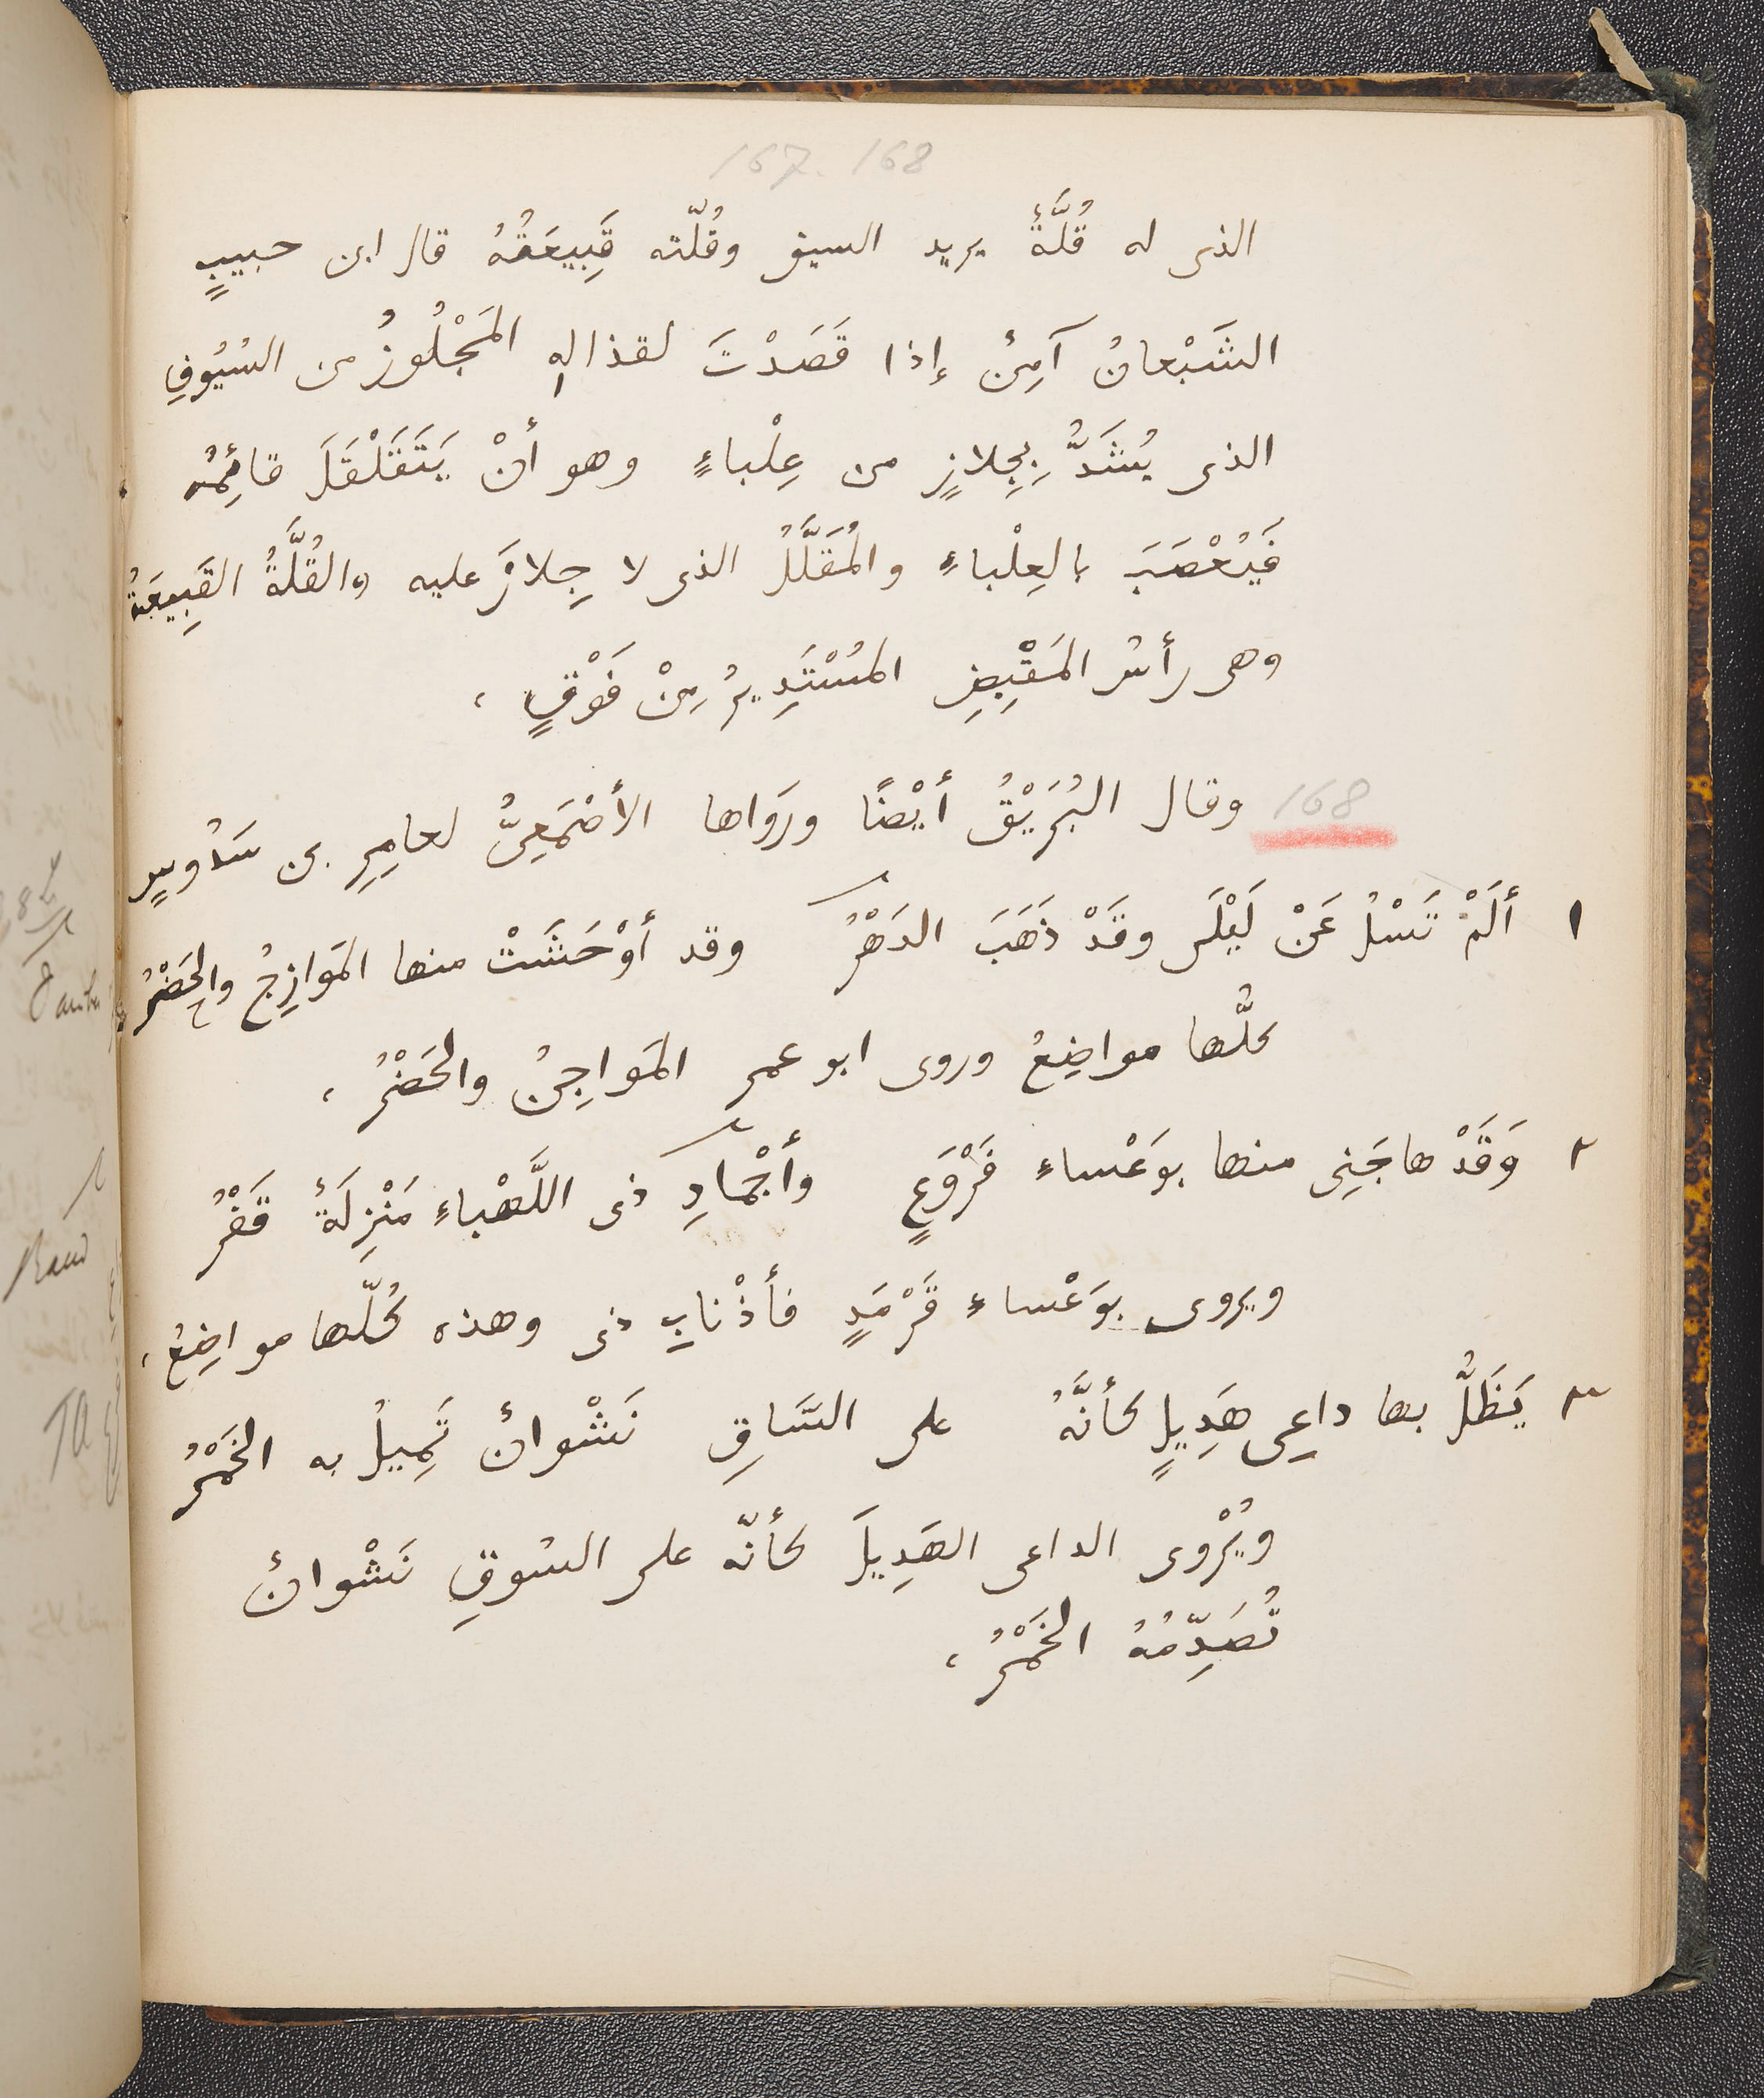 167. 168
الذى له قُلَّةٌ يريد السيف وقُلّته قَبِيعَتُهُ قال ابن حبيبٍ
الشَبْعانُ آمِنٌ إذا قَصَدْتَ لقذاله المَجْلُوزُ من السُيُوفِ
الذى يُشَدُّ بِجِلازٍ من عِلْباءٍ وهو أنْ يَتَقَلْقَلَ قائِمُه
فَيُعْصَبَ بالعِلْباءِ والمُقَلَّلُ الذى لا جِلازَ عليه والقُلَّةُ القَبِيعَةُ
وهى رأسُ المَقْبِضِ المُسْتَدِيرُ مِنْ فَوْقٍ ،
168 وقال البُرَيْقُ أيْضًا ورَوَاها الأصْمَعِىُّ لعامِرِ بن سَدُوسٍ
١ ألَمْ تَسْلُ عَنْ لَيْلَى وقَدْ ذَهَبَ الدَهْرُ وقد أوْحَشَتْ منها المَوازِجُ والحَضْرُ
كلُّها مواضِعُ وروى ابو عمر المَواجِنُ والحَضْرُ ،
٢ وَقَدْ هاجَنِى منها بوَعْساءِ فَرْوَعٍ وأجْمادِ ذى اللَّهْباءِ مَنْزِلَةٌ قَفْرُ
ويروى بوَعْساءِ قَرْمَدٍ فأذْنابِ ذى وهذه كُلّها مواضِعُ ،
٣ يَظَلُّ بها داعِى هَدِيلٍ كأنَّهُ على السَّاقِ نَشْوانٌ تَمِيلُ به الخَمْرُ
ويُرْوى الداعى الهَدِيلَ كأنّه على السُوقِ نَشْوانٌ
تُصَدِّمُهُ الخَمْرُ ،